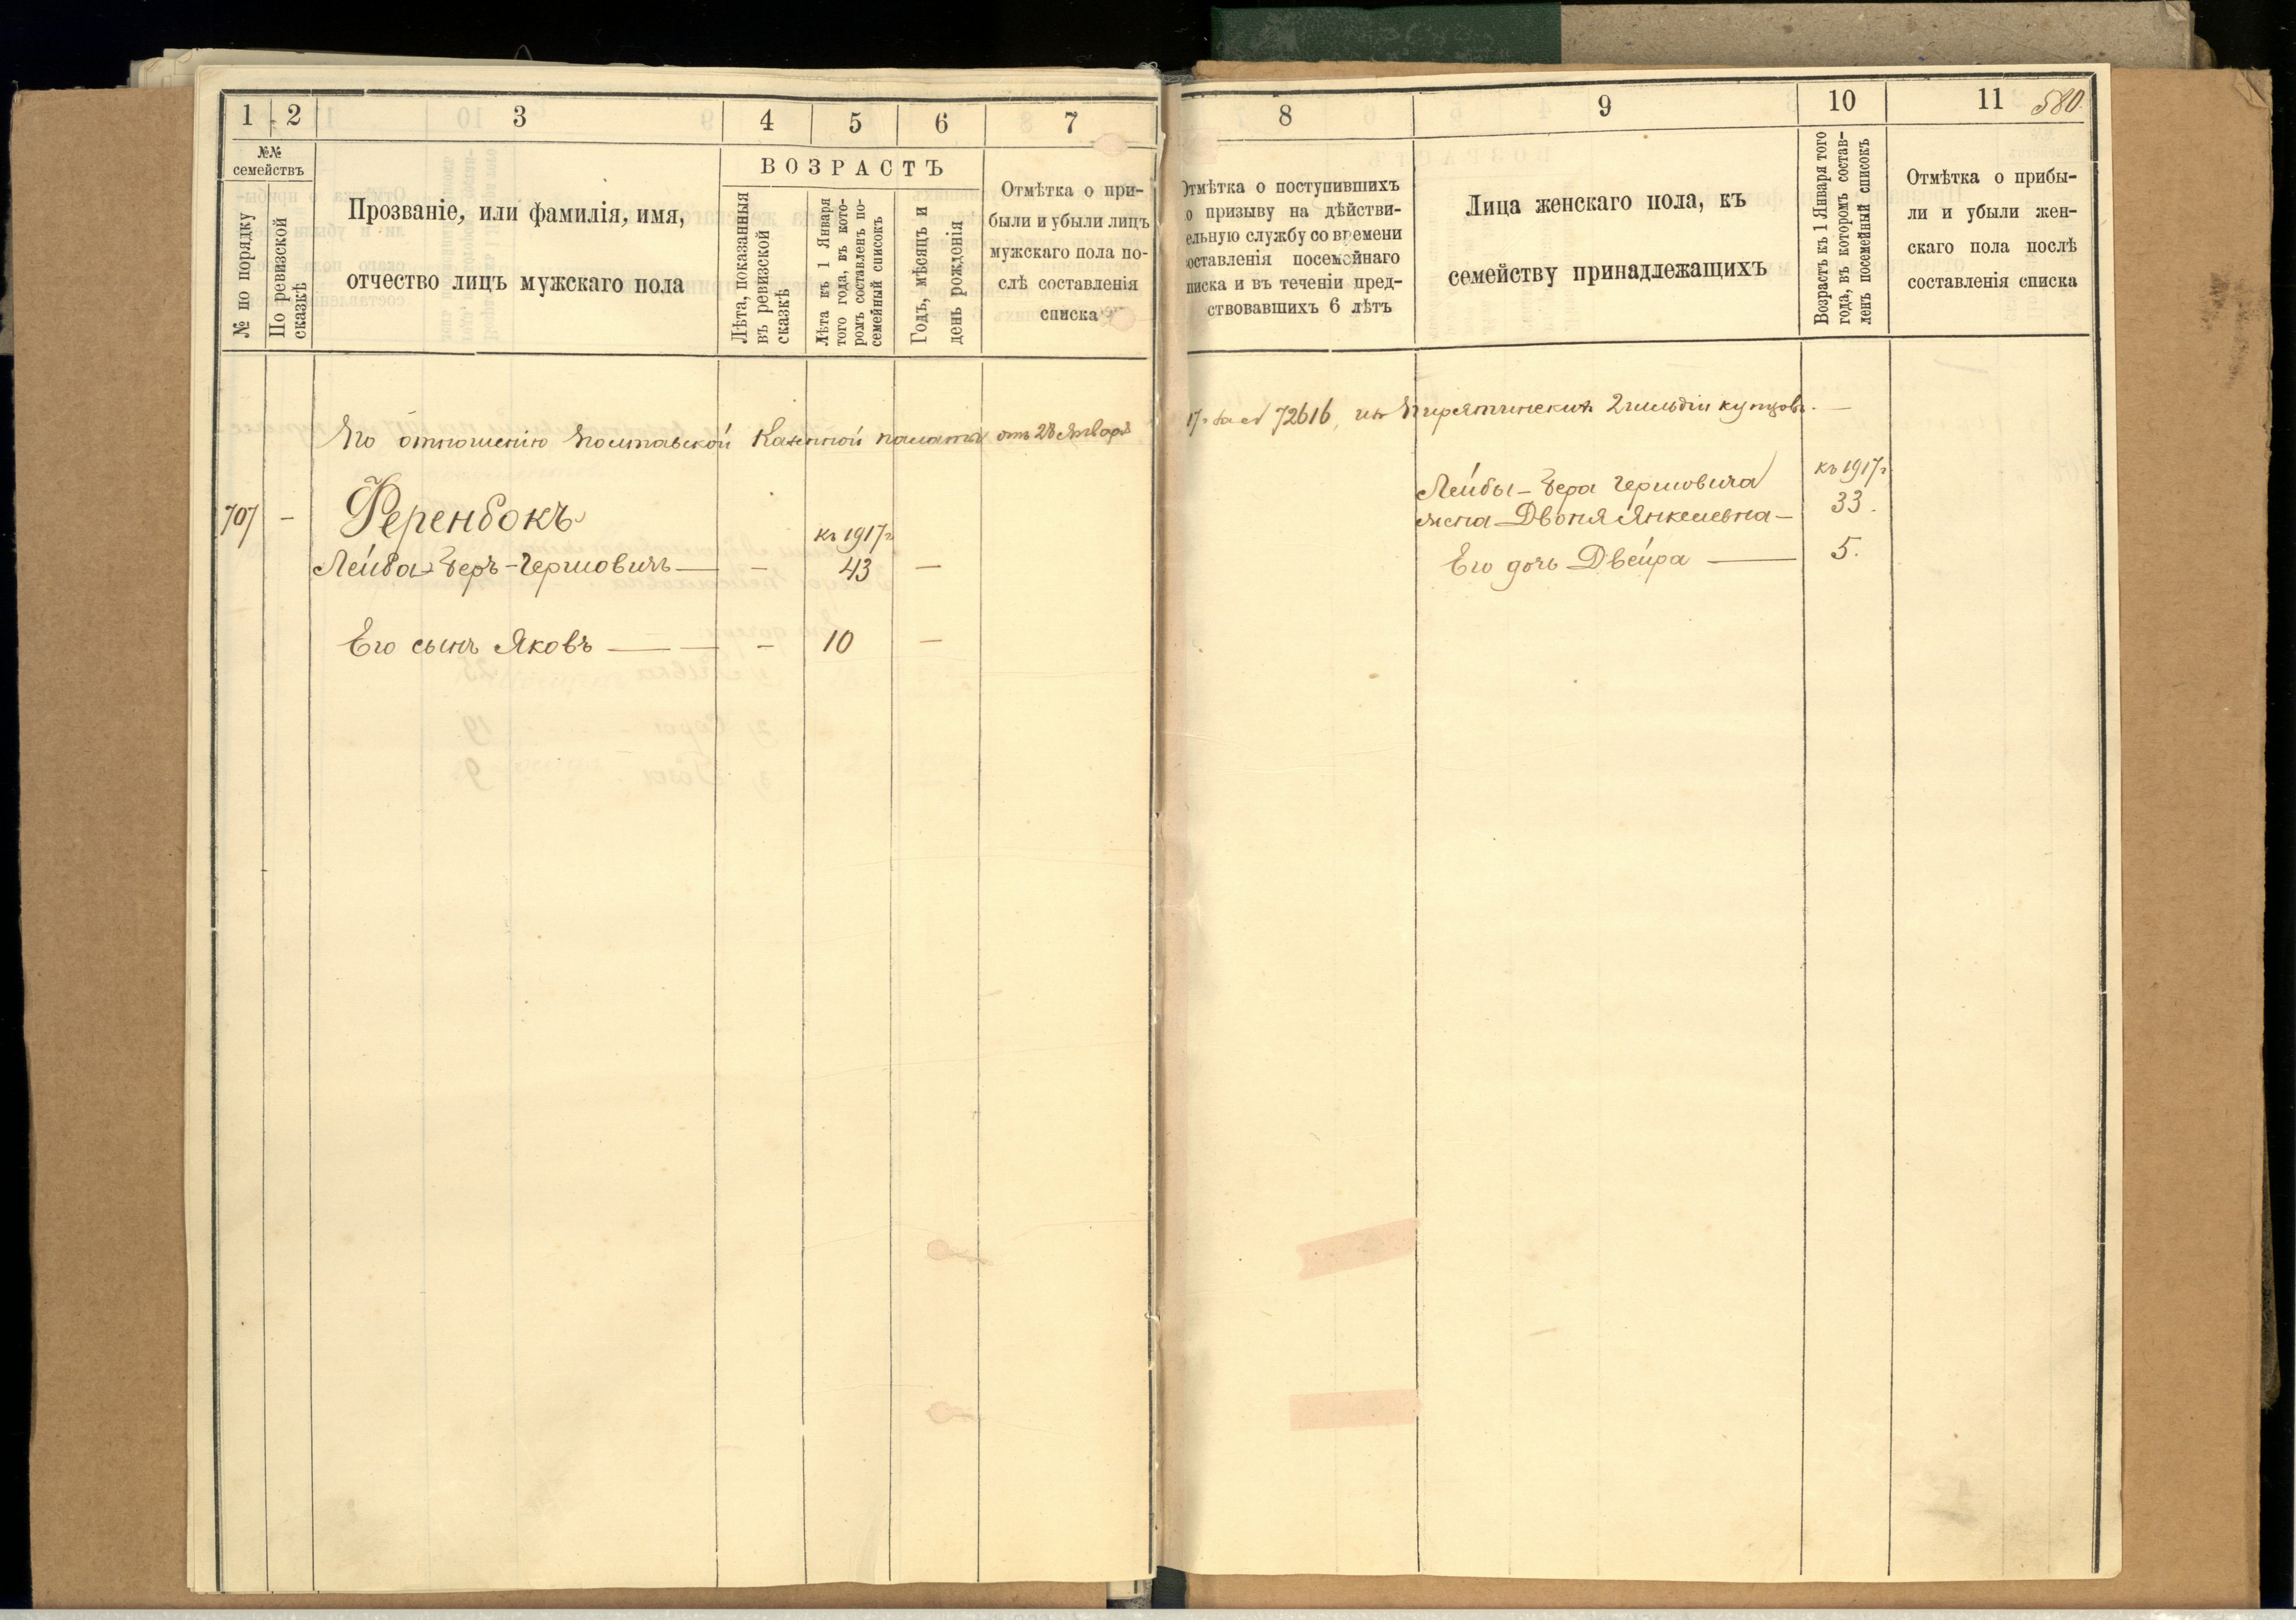 1 2 3 4 5 6 7
№№ семействъ
№ по порядку
По ревизской сказкѣ
Прозваніе, или фамилія, имя,
отчество лицъ мужскаго пола
ВОЗРАСТЪ
Лѣта, показанныя
въ ревизской
сказкѣ
Лѣта къ 1 Января
того года, въ кото-
ромъ составленъ по-
семейный списокъ
Годъ, мѣсяцъ и
день рожденія
Отмѣтка о при-
были и убыли лицъ
мужскаго пола по-
слѣ составленія
списка
По отношенію Полтавской Казенной палаты отъ 28 Января
707 — Ференбокъ
къ 1917 г
Лейба-Беръ-Гершовичъ — — 43 —
Его сынъ Яковъ — — — 10 —
8 9 10 11 580
Отмѣтка о поступившихъ
по призыву на дѣйстви-
ельную службу со времени
оставленія посемейнаго
писка и въ теченіи пред-
ствовавшихъ 6 лѣтъ
Лица женскаго пола, къ
семейству принадлежащихъ
Возрастъ къ 1 Января того
года, въ которомъ состав-
ленъ посемейный списокъ
Отмѣтка о прибы-
ли и убыли жен-
скаго пола послѣ
составленія списка
17 г за № 72616, изъ Пирятинскихъ 2 гильдіи купцовъ. —
къ 1917 г
Лейбы-Бера Гершовича
жена Двоня Янкелевна — 33.
Его дочь Двейра — 5.